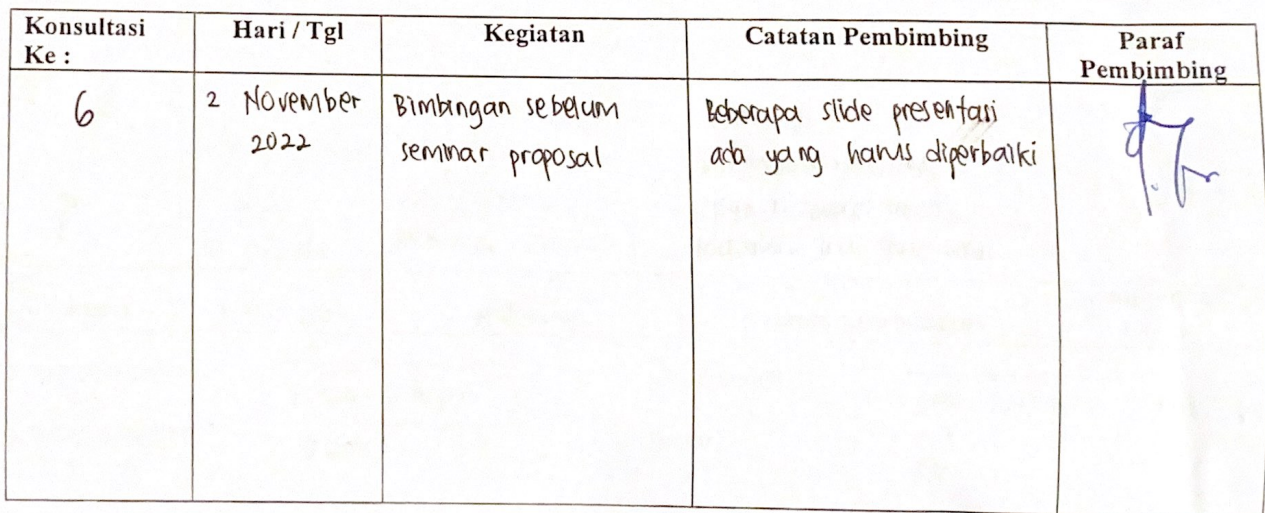 Konsultasi Ke :
Hari / Tgl
Kegiatan
Catatan Pembimbing
Paraf Pembimbing
6
2 November
2022
Bimbingan sebelum
seminar proposal
Beberapa slide presentasi
ada yang harus diperbaiki